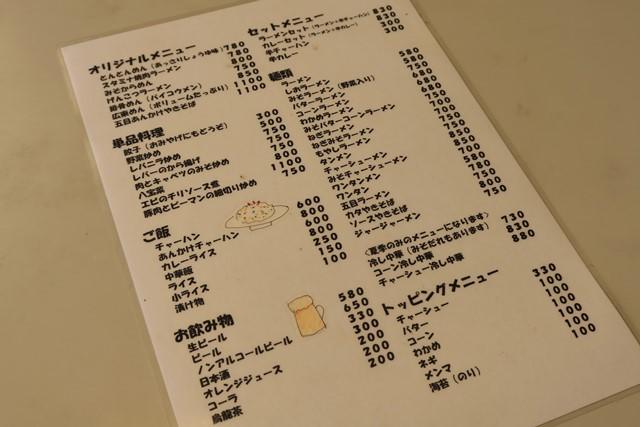 オリジナルメニュー
とんとんめん（あっさりしょうゆ味） 780
スタミナ焼肉ラーメン 780
みそからめん 800
げんこつラーメン 750
排骨めん（パイコウメン） 850
広東めん（ボリュームたっぷり） 1100
五目あんかけやきそば 1100
単品料理
餃子（おみやげにもどうぞ） 300
野菜炒め 500
レバニラ炒め 750
レバーのから揚げ 750
肉とキャベツのみそ炒め 750
八宝菜 800
エビのチリソース煮 1100
豚肉とピーマンの細切り炒め 750
ご飯
チャーハン 600
あんかけチャーハン 800
カレーライス 600
中華飯 800
ライス 250
小ライス 150
漬け物 100
お飲み物
生ビール 580
ビール 650
ノンアルコールビール 330
日本酒 300
オレンジジュース 200
コーラ 200
烏龍茶 200
セットメニュー
ラーメンセット（ラーメン+半チャーハン） 830
カレーセット（ラーメン+半カレー） 830
半チャーハン 300
半カレー 300
麺類
ラーメン 580
しおラーメン 580
みそラーメン（野菜入り） 750
バターラーメン 680
コーンラーメン 680
わかめラーメン 680
みそバターコーンラーメン
ねぎラーメン
ねぎみそラーメン
もやしラーメン
タンメン
チャーシューメン
みそチャーシューメン
ワンタンメン
ワンタン
五目ラーメン
カタやきそば
ソースやきそば
ジャージャーメン
〈夏季のみのメニューになります〉
冷し中華（みそだれもあります） 730
コーン冷し中華 830
チャーシュー冷し中華 880
トッピングメニュー
チャーシュー 330
バター 100
コーン 100
わかめ 100
ネギ 100
メンマ 100
海苔（のり） 100